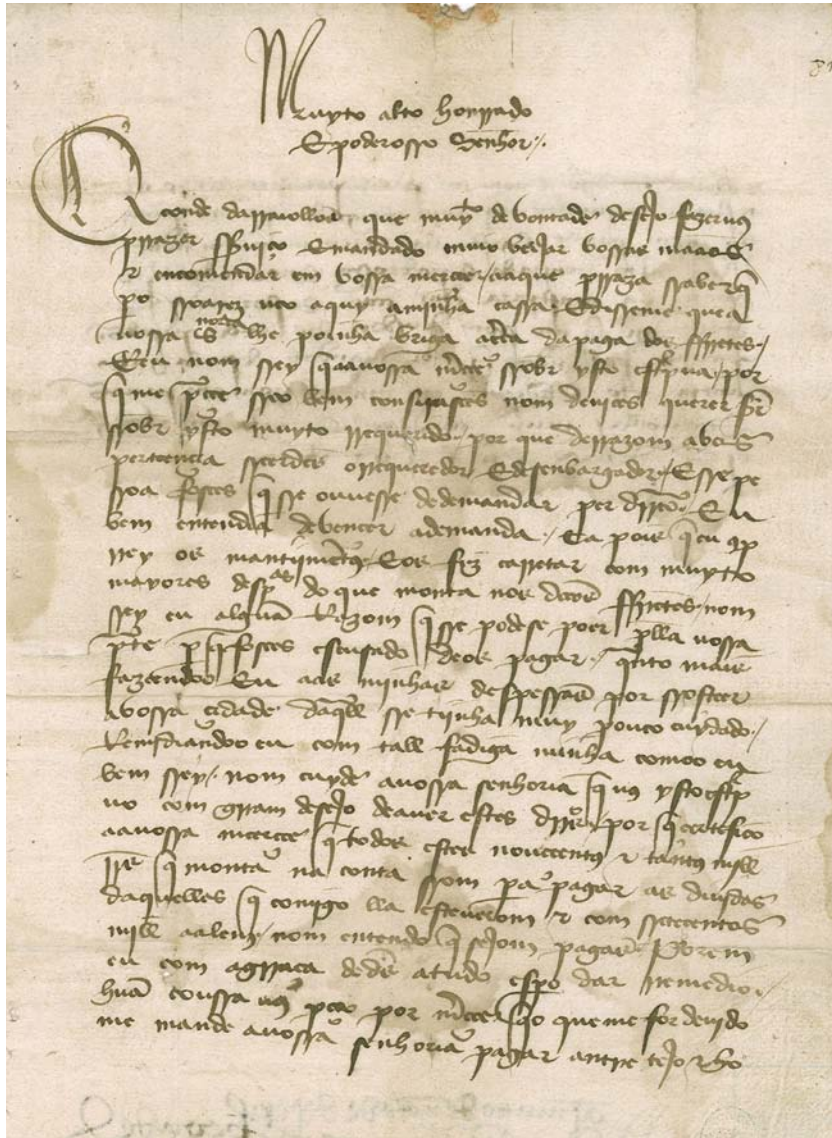 Muyto alto honrrado
E poderosso Senhor /.
O conde darrayollos que muyto de vontade desejo fazervos
prrazer sserviço E mandado invio beijar vossas maaos
E encomendar em vossa mercee / aaqual prraza ssaber q
po ssoarez veo aquy a minha cassa E disseme que a
vossa s nom lhe poinha briga acerca da paga dos ffretes /
E eu nom ssey q aa vossa mercee ssobr ysto escrpva / por
q me pce sseo bem consirasees nom deviees querer sr
ssobr ysto muyto rrequerido por que de rrazom a vos
perteencia sseerdes o rrequeredor E desenbargador / E sse pe
ssoa fosees q sse ouvesse de demandar per dirto Eu
bem entendia de vencer a demanda / Ca pois q eu
os mantijmentos E os fiz carretar com muytto
mayores desp as do que monta nos ffretes / nom
ssey eu algua Rezom q sse podese poer plla vossa
pte fosees escusado de os pagar / qnto mais
fazeendo Eu as minhas despessas por ssosteer
a vossa cidade daqll sse tijnha muy pouco cuydado /
Remediandoo eu com tall fadiga minha como eu
bem ssey / nom cuyde a vossa senhoria q vos ysto escrp
vo com gram desejo de aver estes dirros por q certefico
aa vossa mercee q todos estes noveecentos E tantos mill
rrs q monta na conta ssom pa pagar as dividas
daquelles q comigo lla esteverom E com sseteecentos
mill aalem / nom entendo q sejom pagas Porem
eu com a graça de ds a tudo espo dar rremedio /
hua coussa vos peço por mercee q o que me for devido
me mande a vossa senhoria pagar antre tejo E